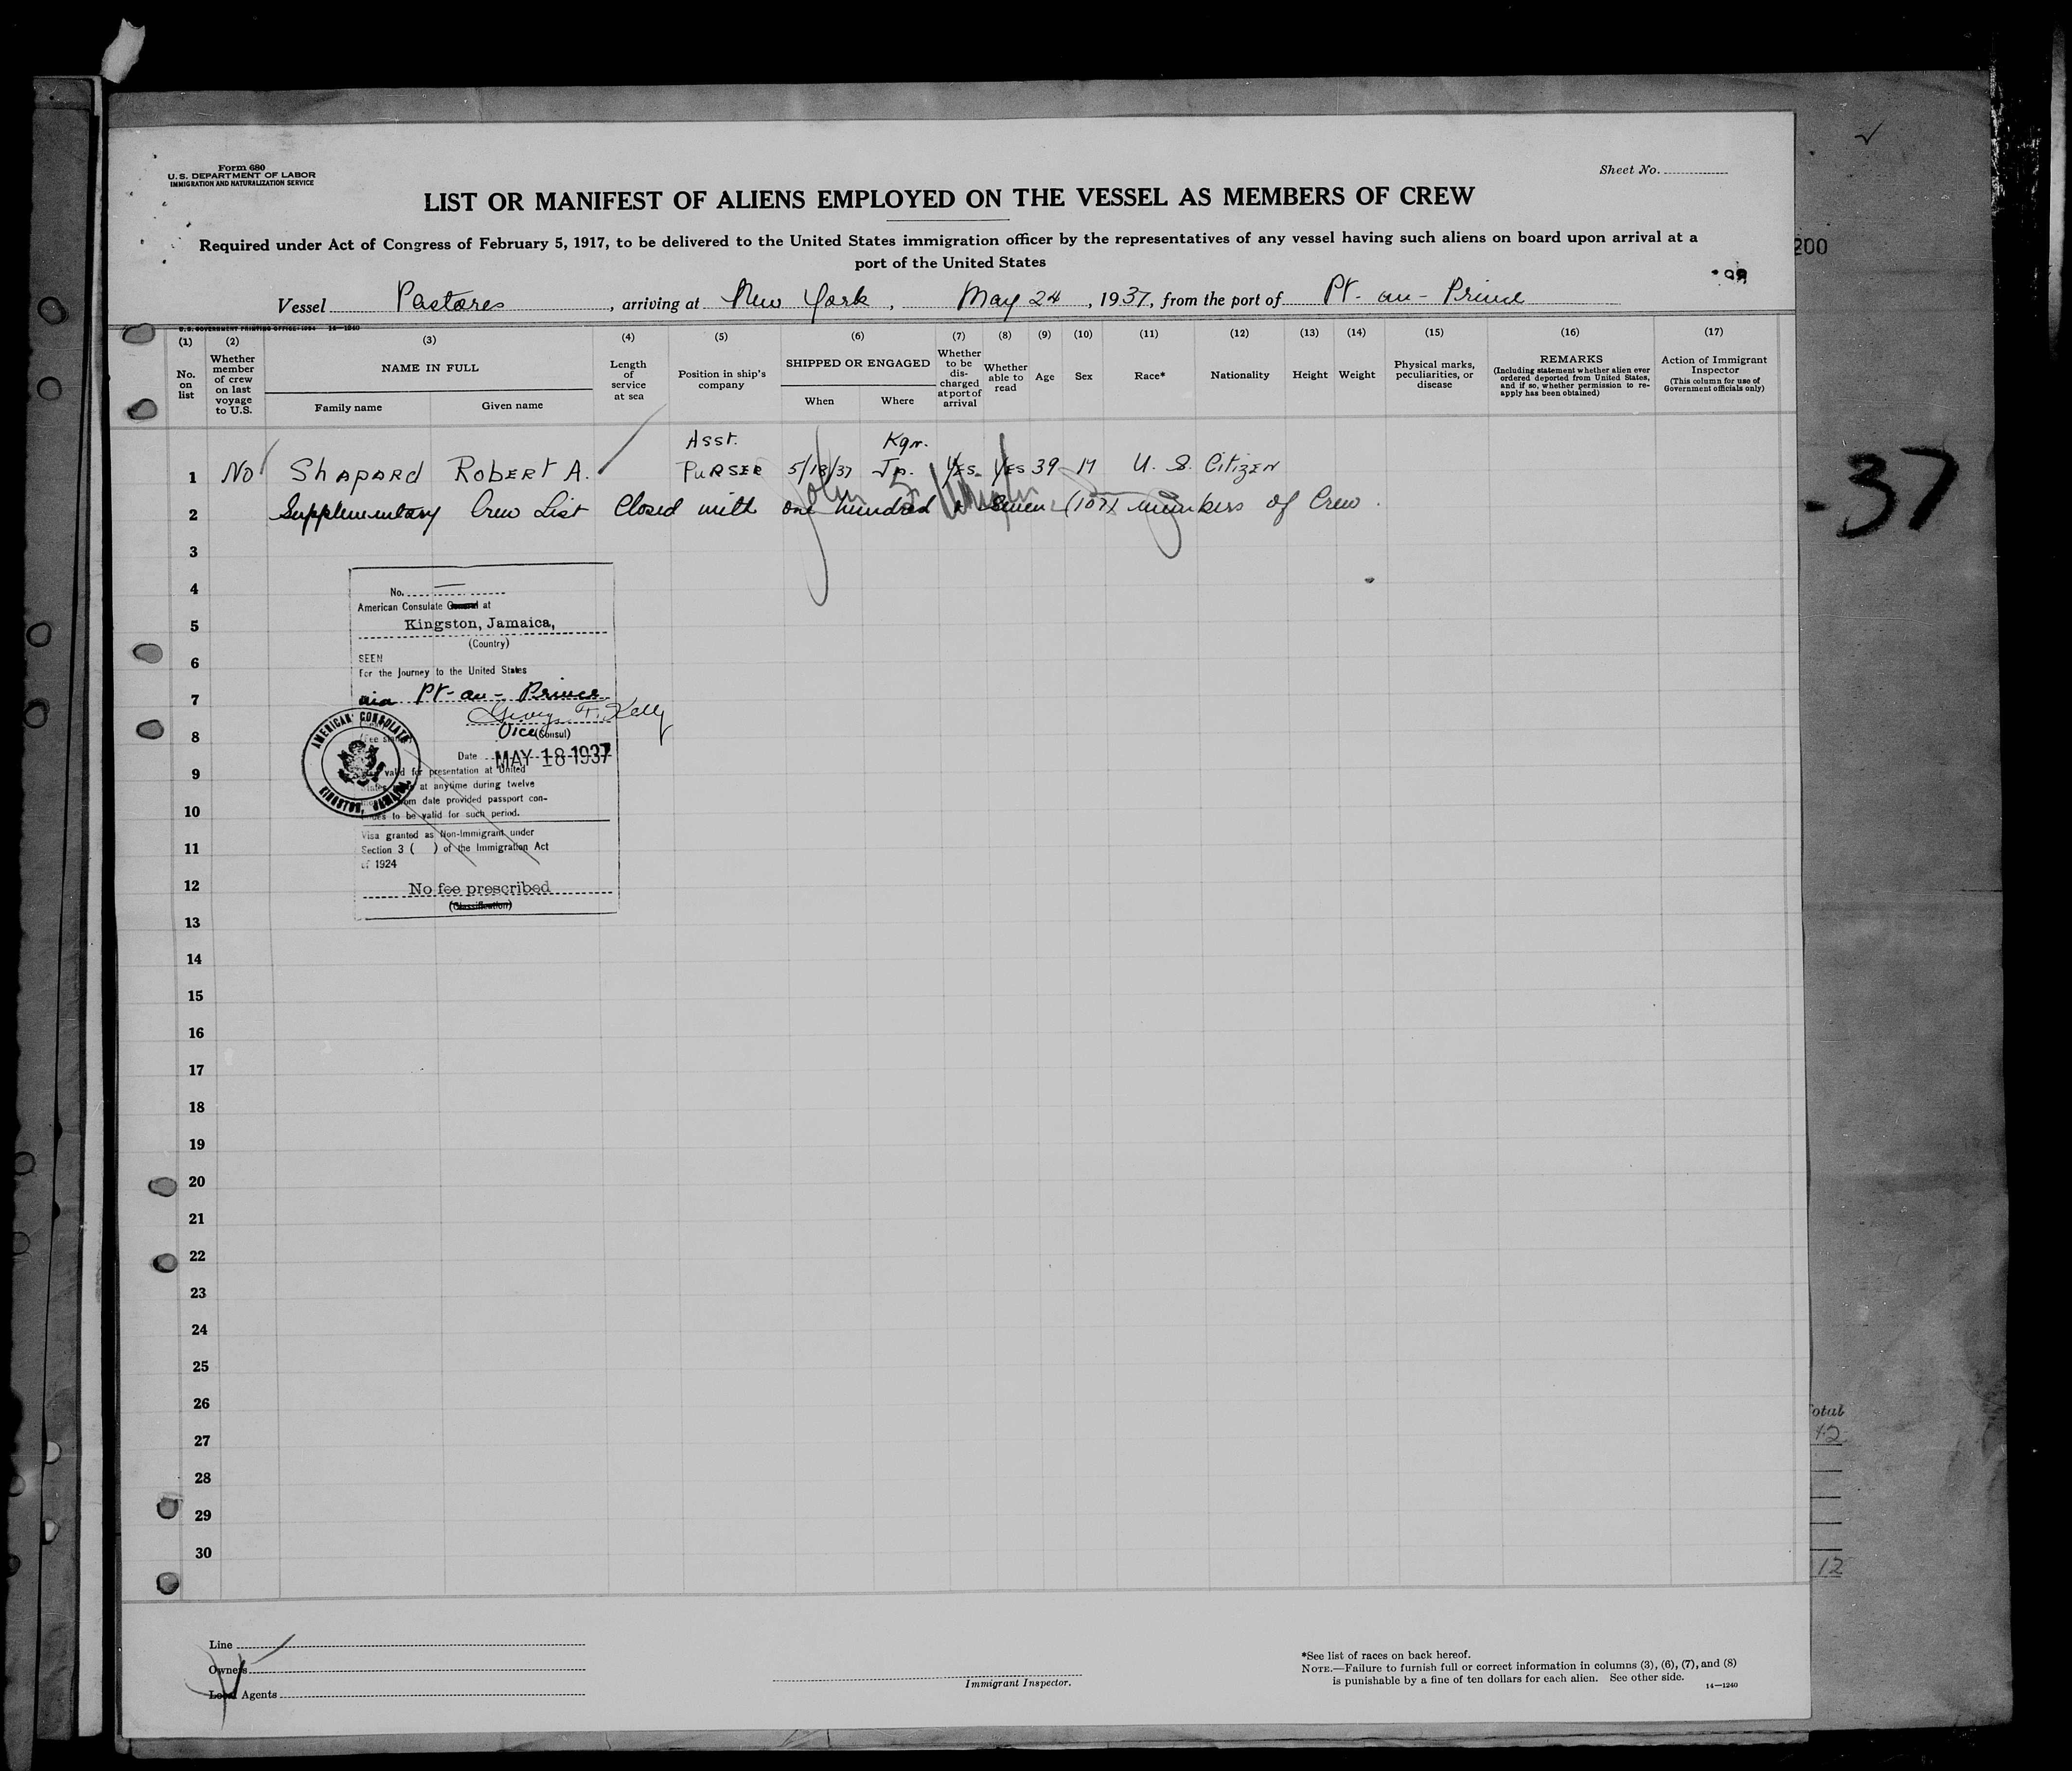 Form 680
U.S. DEPARTMENT OF LABOR
IMMIGRATION AND NATURALIZATION SERVICE
Sheet No.
LIST OR MANIFEST OF ALIENS EMPLOYED ON THE VESSEL AS MEMBERS OF CREW
Required under Act of Congress of February 5, 1917, to be delivered to the United States immigration officer by the representatives of any vessel having such aliens on board upon arrival at a
port of the United States
200
Vessel Pastores, arriving at New York, May 24, 1937, from the port of Pt-au-Prince
U.S. GOVERNMENT PRINTING OFFICE: 1934 14—1240
(1) (2) (3) (4) (5) (6) (7) (8) (9) (10) (11) (12) (13) (14) (15) (16) (17)
No. on list
Whether member of crew on last voyage to U.S.
NAME IN FULL
Family name Given name
Length of service at sea
Position in ship's company
SHIPPED OR ENGAGED
When Where
Whether to be discharged at port of arrival
Whether able to read
Age
Sex
Race*
Nationality
Height
Weight
Physical marks, peculiarities, or disease
REMARKS
(Including statement whether alien ever ordered deported from United States, and if so, whether permission to re-apply has been obtained)
Action of Immigrant Inspector
(This column for use of Government officials only)
Asst. Kgn.
1 No Shapard Robert A. Purser 5/18/37 Ja. Yes Yes 39 M U. S. Citizen
2 Supplementary Crew List Closed with one hundred & Seven (107) members of Crew.
-37
3
4
5
6
7
8
9
10
11
12
13
14
15
16
17
18
19
20
21
22
23
24
25
26
27
28
29
30
No.
American Consulate General at
Kingston, Jamaica,
(Country)
SEEN
For the Journey to the United States
via Pt-au-Prince
George T. Kelly
Vice (Consul)
Date MAY 18 1937
valid for presentation at United
States at anytime during twelve
from date provided passport con-
to be valid for such period.
Visa granted as Non-Immigrant under
Section 3 ( ) of the Immigration Act
of 1924
No fee prescribed
(Classification)
AMERICAN CONSULATE
KINGSTON, JAMAICA
Total
12
12
Line
Owners
Local Agents
Immigrant Inspector.
*See list of races on back hereof.
NOTE.—Failure to furnish full or correct information in columns (3), (6), (7), and (8)
is punishable by a fine of ten dollars for each alien. See other side.
14—1240